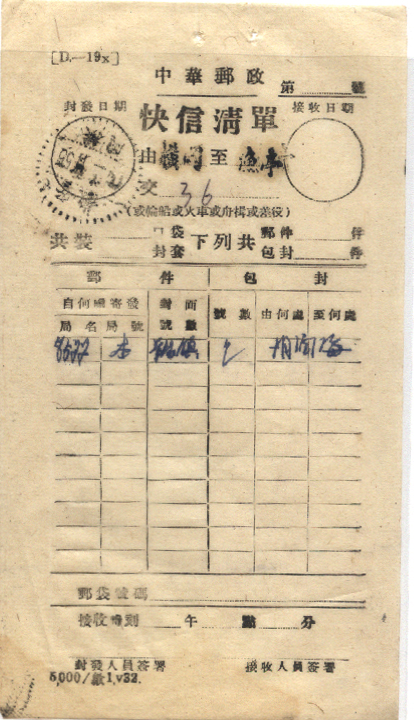 [D.—19x]
中華郵政
第 號
封發日期 快信清單 接收日期
由 至
交 36
(或輪船或火車或舟楫或差役)
共裝 口袋 下列共 郵件 件
封套 包封 件
郵件 包封
自何處寄發 封面 號數 由何處 至何處
局名局號 號數
8677 本
郵袋號碼
接收時刻 午 點 分
封發人員簽署 接收人員簽署
5,000/ 1,v32.